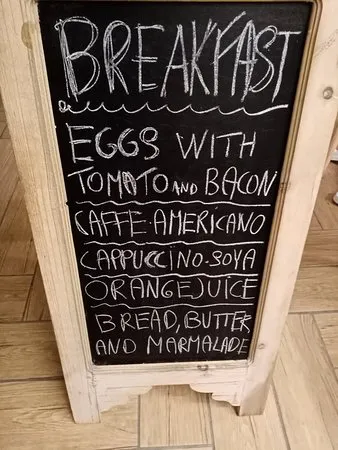 BREAKFAST
EGGS WITH
TOMATO AND BACON
CAFFE·AMERICANO
CAPPUCCINO·SOYA
ORANGE JUICE
BREAD, BUTTER
AND MARMALADE